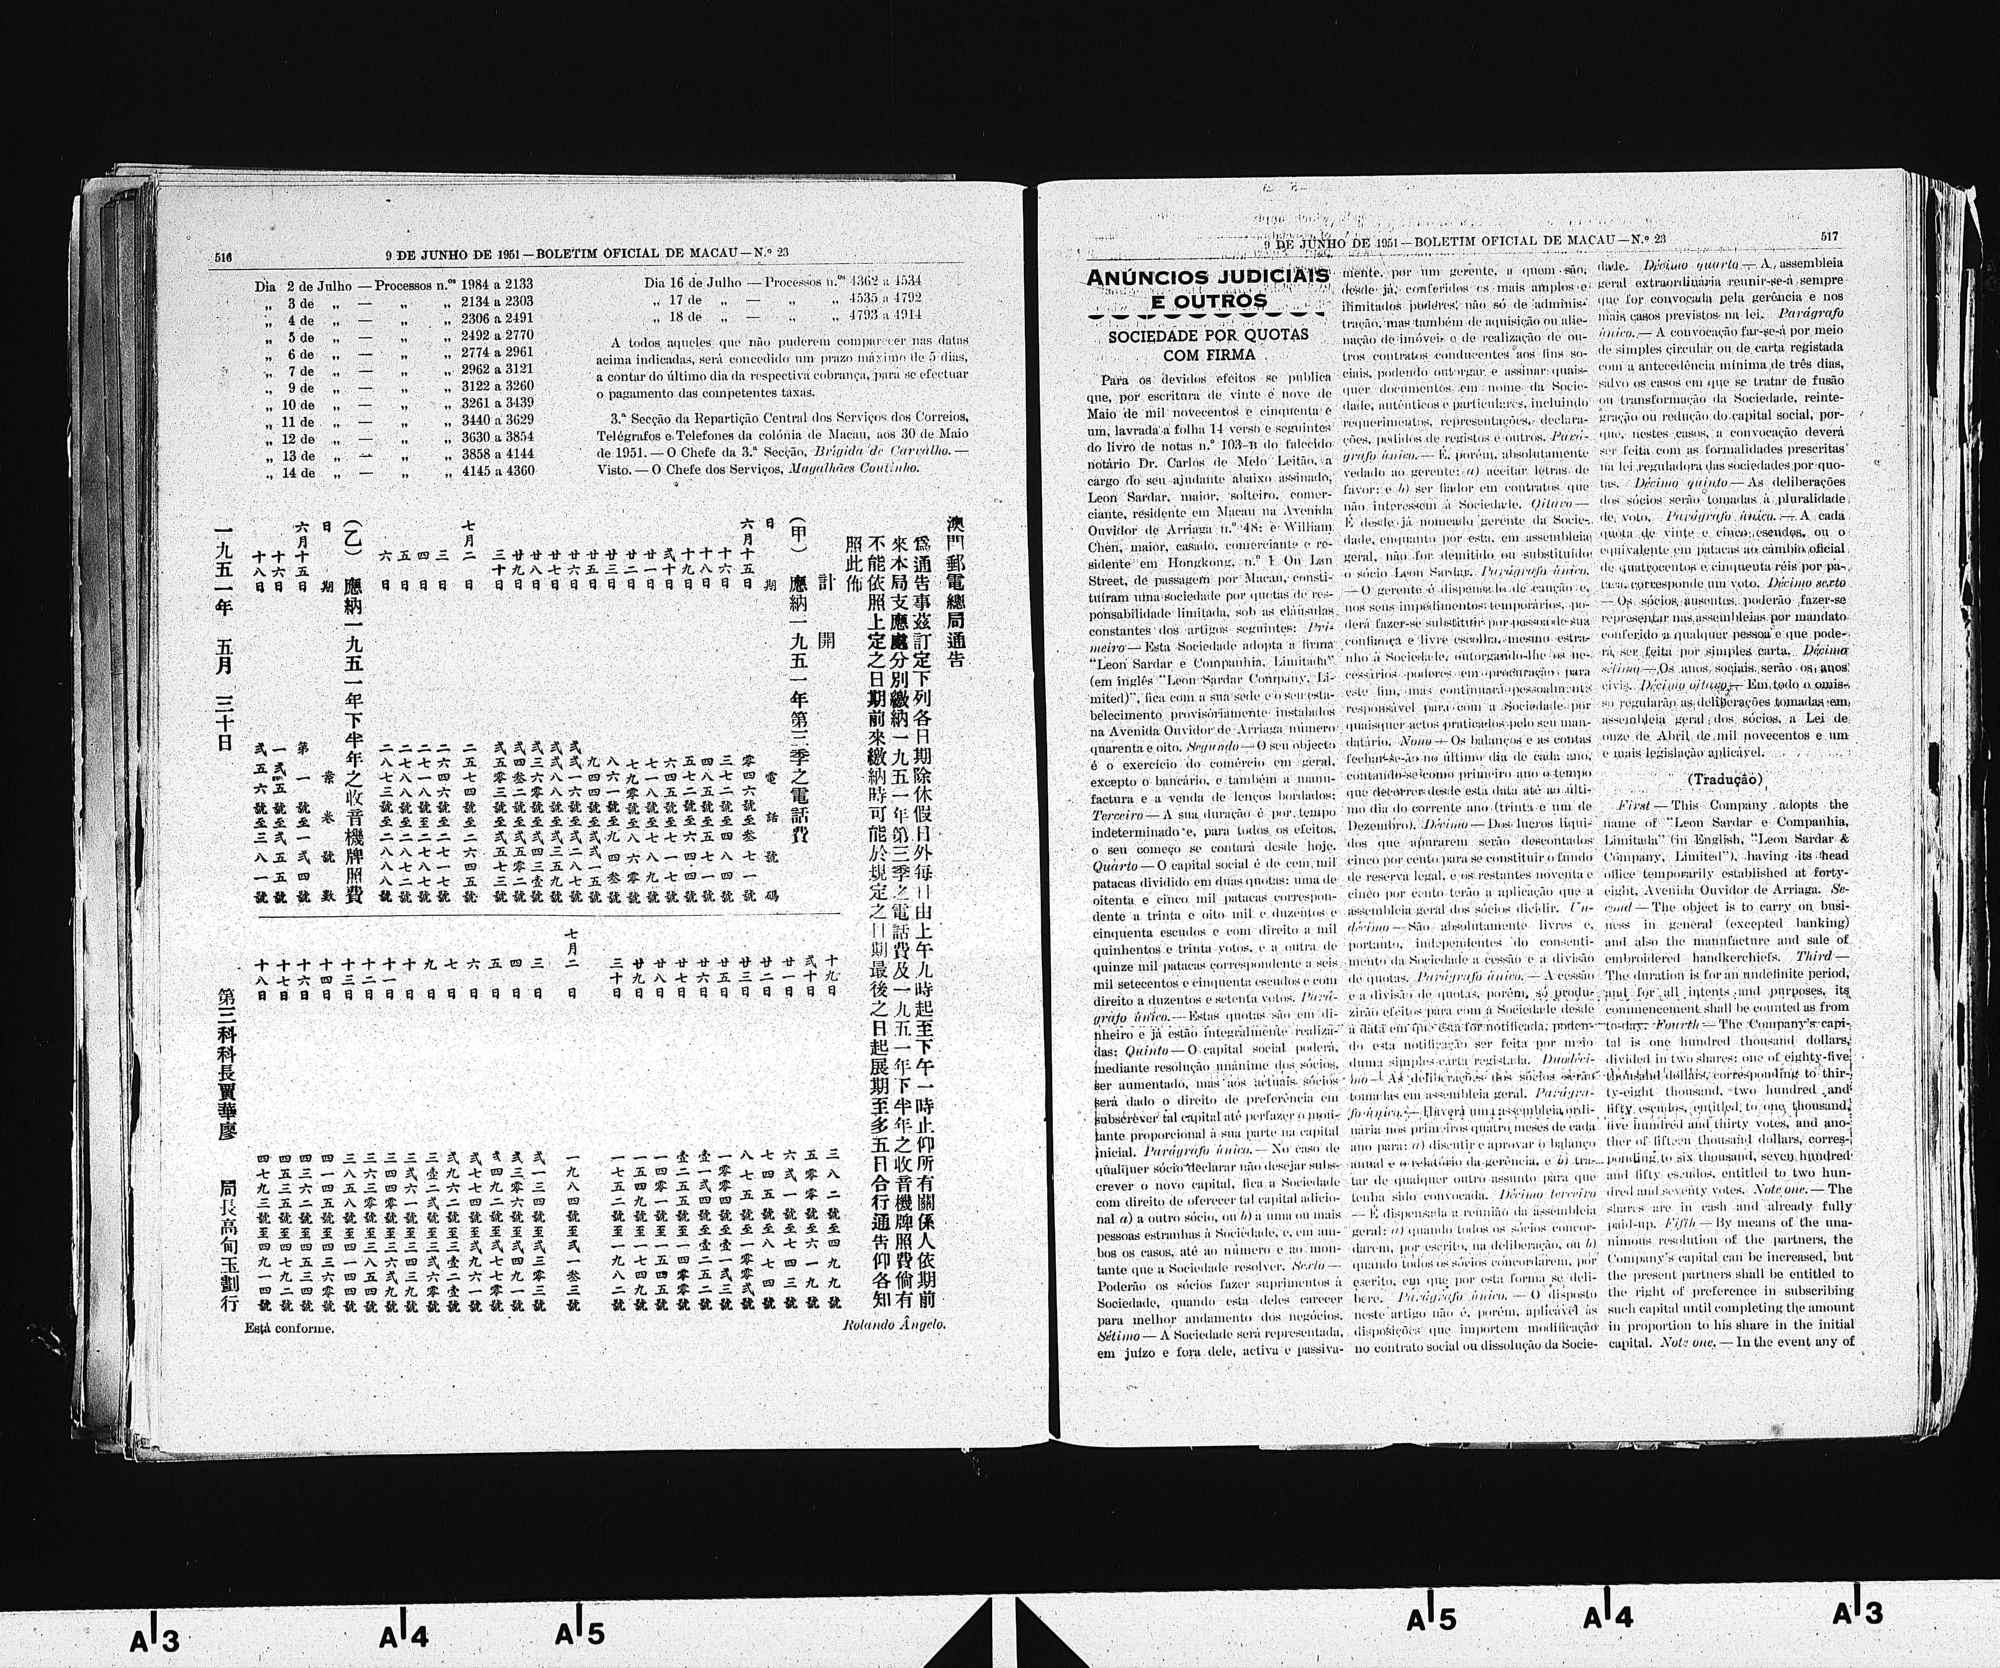 516
9 DE JUNHO DE 1951—BOLETIM OFICIAL DE MACAU—N.º 23
Dia 2 de Julho — Processos n.ºs 1984 a 2133
„ 3 de „ — „ „ 2134 a 2303
„ 4 de „ — „ „ 2306 a 2491
„ 5 de „ — „ „ 2492 a 2770
„ 6 de „ — „ „ 2774 a 2961
„ 7 de „ — „ „ 2962 a 3121
„ 9 de „ — „ „ 3122 a 3260
„ 10 de „ — „ „ 3261 a 3439
„ 11 de „ — „ „ 3440 a 3629
„ 12 de „ — „ „ 3630 a 3854
„ 13 de „ — „ „ 3858 a 4144
„ 14 de „ — „ „ 4145 a 4360
Dia 16 de Julho — Processos n.ºs 4362 a 4534
„ 17 de „ — „ „ 4535 a 4792
„ 18 de „ — „ „ 4793 a 4914
A todos aqueles que não puderem comparecer nas datas
acima indicadas, será concedido um prazo máximo de 5 dias,
a contar do último dia da respectiva cobrança, para se efectuar
o pagamento das competentes taxas.
3.ª Secção da Repartição Central dos Serviços dos Correios,
Telégrafos e Telefones da colónia de Macau, aos 30 de Maio
de 1951. — O Chefe da 3.ª Secção, Brígida de Carvalho. —
Visto. — O Chefe dos Serviços, Magalhães Coutinho.
澳門郵電總局通告
爲通告事茲訂定下列各日期除休假日外每日由上午九時起至下午一時止仰所有關係人依期前
來本局支應處分別繳納一九五一年第三季之電話費及一九五一年下半年之收音機牌照費倘有
不能依照上定之日期前來繳納時可能於規定之日期最後之日起展期至多五日合行通告仰各知
照此佈
計開
(甲) 應納一九五一年第三季之電話費
日期 電話號碼
六月十五日 零四六號至叁七一號
十六日 三七二號至四八四號
十八日 四八五號至五七一號
十九日 五七二號至六四四號
弍十日 六四五號至七一七號
廿一日 七一八號至七八九號
廿二日 七九零號至八六零號
廿三日 八六一號至九四叁號
(乙) 應納一九五一年下半年之收音機牌照費
日期 案卷號數
六月十五日 第一號至一弍四號
十六日 一弍五號至弍五五號
十八日 弍五六號至三八一號
十九日 三八二號至四九九號
弍十日 五零零號至六一九號
廿一日 六弍一號至七四三號
廿二日 七四五號至八七四號
一九五一年 五月 三十日
第三科科長賈華廖 局長高旬玉劃行
Está conforme.
Rolando Ângelo.
9 DE JUNHO DE 1951—BOLETIM OFICIAL DE MACAU—N.º 23
517
ANÚNCIOS JUDICIAIS
E OUTROS
SOCIEDADE POR QUOTAS
COM FIRMA
Para os devidos efeitos se publica
que, por escritura de vinte e nove de
Maio de mil novecentos e cinquenta e
um, lavrada a folha 14 verso e seguintes
do livro de notas n.º 103-B do falecido
notário Dr. Carlos de Melo Leitão, a
cargo do seu ajudante abaixo assinado,
Leon Sardar, maior, solteiro, comer-
ciante, residente em Macau na Avenida
Ouvidor de Arriaga n.º 48; e William
Chen, maior, casado, comerciante e re-
sidente em Hongkong, n.º 1 On Lan
Street, de passagem por Macau, consti-
tuíram uma sociedade por quotas de res-
ponsabilidade limitada, sob as cláusulas
constantes dos artigos seguintes: Pri-
meiro — Esta Sociedade adopta a firma
“Leon Sardar e Companhia, Limitada”
(em inglês “Leon Sardar Company, Li-
mited)”, fica com a sua sede e o seu esta-
belecimento provisóriamente instalados
na Avenida Ouvidor de Arriaga número
quarenta e oito. Segundo — O seu objecto
é o exercício do comércio em geral,
excepto o bancário, e também a manu-
factura e a venda de lenços bordados;
Terceiro — A sua duração é por tempo
indeterminado e, para todos os efeitos,
o seu começo se contará desde hoje.
Quarto — O capital social é de cem mil
patacas dividido em duas quotas: uma de
oitenta e cinco mil patacas correspon-
dente a trinta e oito mil e duzentos e
cinquenta escudos e com direito a mil
quinhentos e trinta votos, e a outra de
quinze mil patacas correspondente a seis
mil setecentos e cinquenta escudos e com
direito a duzentos e setenta votos. Pará-
grafo único. — Estas quotas são em di-
nheiro e já estão integralmente realiza-
das; Quinto — O capital social poderá,
mediante resolução unânime dos sócios,
ser aumentado, mas aos actuais sócios
será dado o direito de preferência em
subscrever tal capital até perfazer o mon-
tante proporcional à sua parte na capital
inicial. Parágrafo único. — No caso de
qualquer sócio declarar não desejar subs-
crever o novo capital, fica a Sociedade
com direito de oferecer tal capital adicio-
nal a) a outro sócio, ou b) a uma ou mais
pessoas estranhas à Sociedade, e, em am-
bos os casos, até ao número e ao mon-
tante que a Sociedade resolver. Sexto —
Poderão os sócios fazer suprimentos à
Sociedade, quando esta deles carecer
para melhor andamento dos negócios.
Sétimo — A Sociedade será representada,
em juízo e fora dele, activa e passiva-
mente, por um gerente, a quem são,
desde já, conferidos os mais amplos e
ilimitados poderes, não só de adminis-
tração, mas também de aquisição ou alie-
nação de imóveis e de realização de ou-
tros contratos conducentes aos fins so-
ciais, podendo outorgar e assinar quais-
quer documentos em nome da Socie-
dade, autênticos e particulares, incluindo
requerimentos, representações, declara-
ções, pedidos de registos e outros. Pará-
grafo único. — É, porém, absolutamente
vedado ao gerente: a) aceitar letras de
favor; e b) ser fiador em contratos que
não interessem à Sociedade. Oitavo —
É desde já nomeado gerente da Socie-
dade, enquanto por esta, em assembleia
geral, não for demitido ou substituído
o sócio Leon Sardar. Parágrafo único.
— O gerente é dispensado de caução e,
nos seus impedimentos temporários, po-
derá fazer-se substituir por pessoa de sua
confiança e livre escolha, mesmo estra-
nho à Sociedade, outorgando-lhe os ne-
cessários poderes em procuração para
este fim, mas continuará pessoalmente
responsável para com a Sociedade por
quaisquer actos praticados pelo seu man-
datário. Nono — Os balanços e as contas
fechar-se-ão no último dia de cada ano,
contando-se como primeiro ano o tempo
que decorrer desde esta data até ao últi-
mo dia do corrente ano (trinta e um de
Dezembro). Décimo — Dos lucros líqui-
dos que apurarem serão descontados
cinco por cento para se constituir o fundo
de reserva legal, e os restantes noventa e
cinco por cento terão a aplicação que a
assembleia geral dos sócios dicidir. Un-
décimo — São absolutamente livres e,
portanto, independentes do consenti-
mento da Sociedade a cessão e a divisão
de quotas. Parágrafo único. — A cessão
e a divisão de quotas, porém, só produ-
zirão efeitos para com a Sociedade desde
a data em que esta for notificada, poden-
do esta notificação ser feita por meio
duma simples carta registada. Duodéci-
mo — As deliberações dos sócios serão
tomadas em assembleia geral. Parágra-
fo único. — Haverá uma assembleia ordi-
nária nos primeiros quatro meses de cada
ano para: a) discutir e aprovar o balanço
anual e o relatório da gerência, e b) tra-
tar de qualquer outro assunto para que
tenha sido convocada. Décimo terceiro
— É dispensada a reunião da assembleia
geral: a) quando todos os sócios concor-
darem, por escrito, na deliberação, ou b)
quando todos os sócios concordarem, por
escrito, em que por esta forma se deli-
bere. Parágrafo único. — O disposto
neste artigo não é, porém, aplicável às
disposições que importem modificação
no contrato social ou dissolução da Socie-
dade. Décimo quarto — A assembleia
geral extraordinária reunir-se-á sempre
que for convocada pela gerência e nos
mais casos previstos na lei. Parágrafo
único. — A convocação far-se-á por meio
de simples circular ou de carta registada
com a antecedência mínima de três dias,
salvo os casos em que se tratar de fusão
ou transformação da Sociedade, reinte-
gração ou redução do capital social, por-
que, nestes casos, a convocação deverá
ser feita com as formalidades prescritas
na lei reguladora das sociedades por quo-
tas. Décimo quinto — As deliberações
dos sócios serão tomadas à pluralidade
de voto. Parágrafo único. — A cada
quota de vinte e cinco escudos, ou o
equivalente em patacas ao câmbio oficial
de quatrocentos e cinquenta réis por pa-
taca, corresponde um voto. Décimo sexto
— Os sócios ausentes, poderão fazer-se
representar nas assembleias por mandato
conferido a qualquer pessoa e que pode-
rá ser feita por simples carta. Décimo
sétimo — Os anos sociais serão os anos
civis. Décimo oitavo — Em todo o omis-
so regularão as deliberações tomadas em
assembleia geral dos sócios, a Lei de
onze de Abril de mil novecentos e um
e mais legislação aplicável.
(Tradução)
First — This Company adopts the
name of “Leon Sardar e Companhia,
Limitada” (in English, “Leon Sardar &
Company, Limited”), having its head
office temporarily established at forty-
eight, Avenida Ouvidor de Arriaga. Se-
cond — The object is to carry on busi-
ness in general (excepted banking)
and also the manufacture and sale of
embroidered handkerchiefs. Third —
The duration is for an undefinite period,
and for all intents and purposes, its
commencement shall be counted as from
to-day. Fourth — The Company's capi-
tal is one hundred thousand dollars,
divided in two shares: one of eighty-five
thousand dollars, corresponding to thir-
ty-eight thousand, two hundred and
fifty escudos, entitled to one thousand,
five hundred and thirty votes, and ano-
ther of fifteen thousand dollars, corres-
ponding to six thousand, seven hundred
and fifty escudos, entitled to two hun-
dred and seventy votes. Note one. — The
shares are in cash and already fully
paid-up. Fifth — By means of the una-
nimous resolution of the partners, the
Company's capital can be increased, but
the present partners shall be entitled to
the right of preference in subscribing
such capital until completing the amount
in proportion to his share in the initial
capital. Note one. — In the event any of
A 3
A 4
A 5
A 5
A 4
A 3